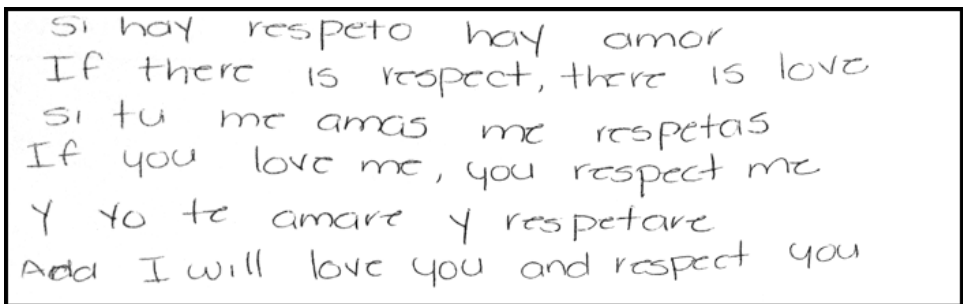 Si hay respeto hay amor
If there is respect, there is love
Si tu me amas me respetas
If you love me, you respect me
Y Yo te amare y respetare
Add I will love you and respect you